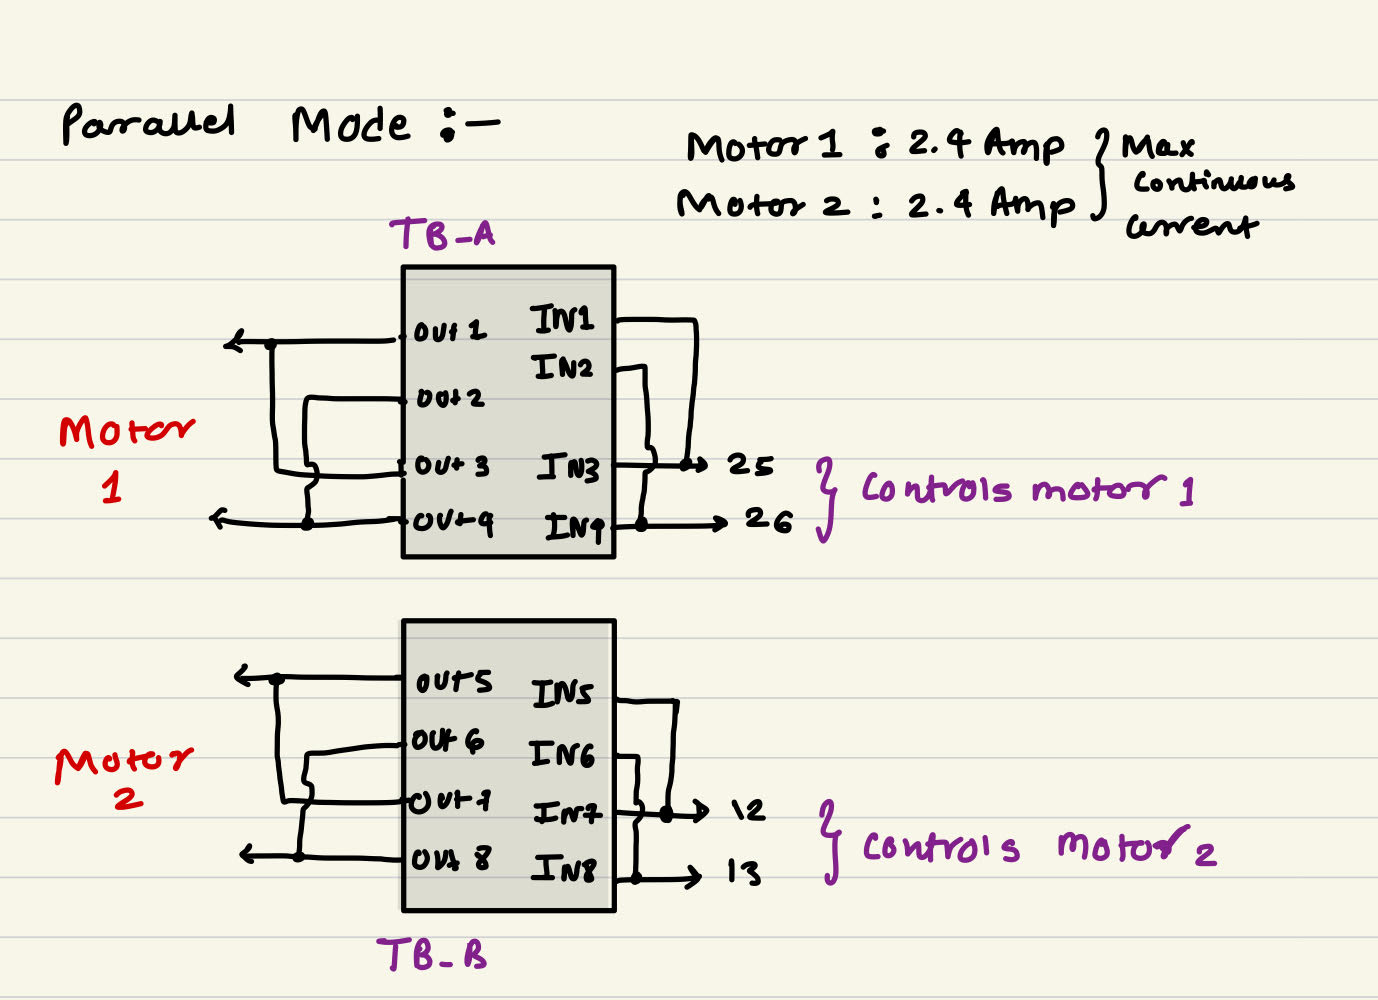 Parallel Mode :-
Motor 1 : 2.4 Amp
Motor 2 : 2.4 Amp
Max
continuous
current
TB_A
OUT 1
OUT 2
OUT 3
OUT 4
IN1
IN2
IN3
IN4
Motor
1
25
26
Controls motor 1
OUT 5
OUT 6
OUT 7
OUT 8
IN5
IN6
IN7
IN8
Motor
2
12
13
Controls motor 2
TB_B